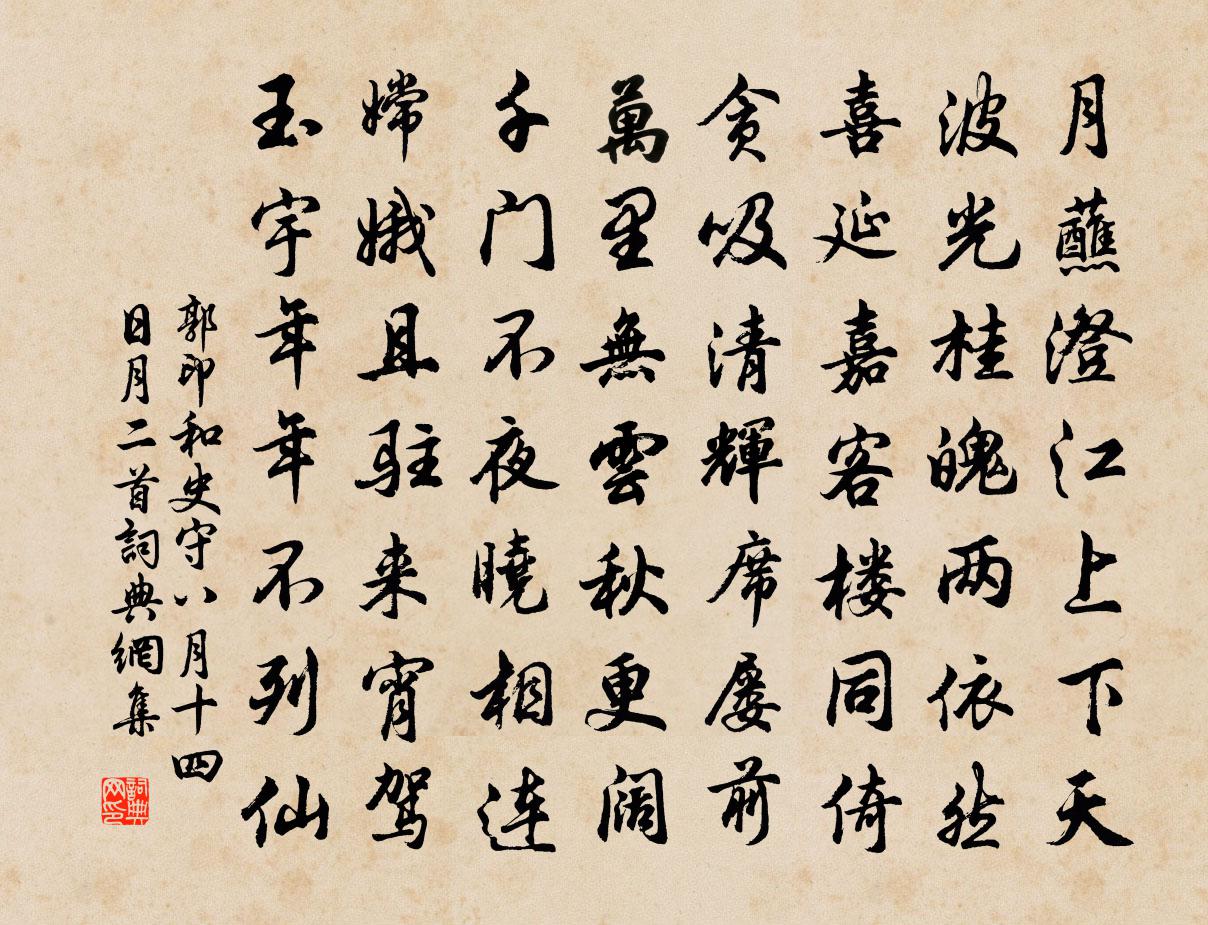 月蘸澄江上下天
波光桂魄两依然
喜延嘉客楼同倚
贪吸清輝席屡前
萬里無雲秋更阔
千门不夜曉相连
嫦娥且駐来宵驾
玉宇年年不列仙
郭印和史守八月十四
日月二首詞典網集
詞典网印